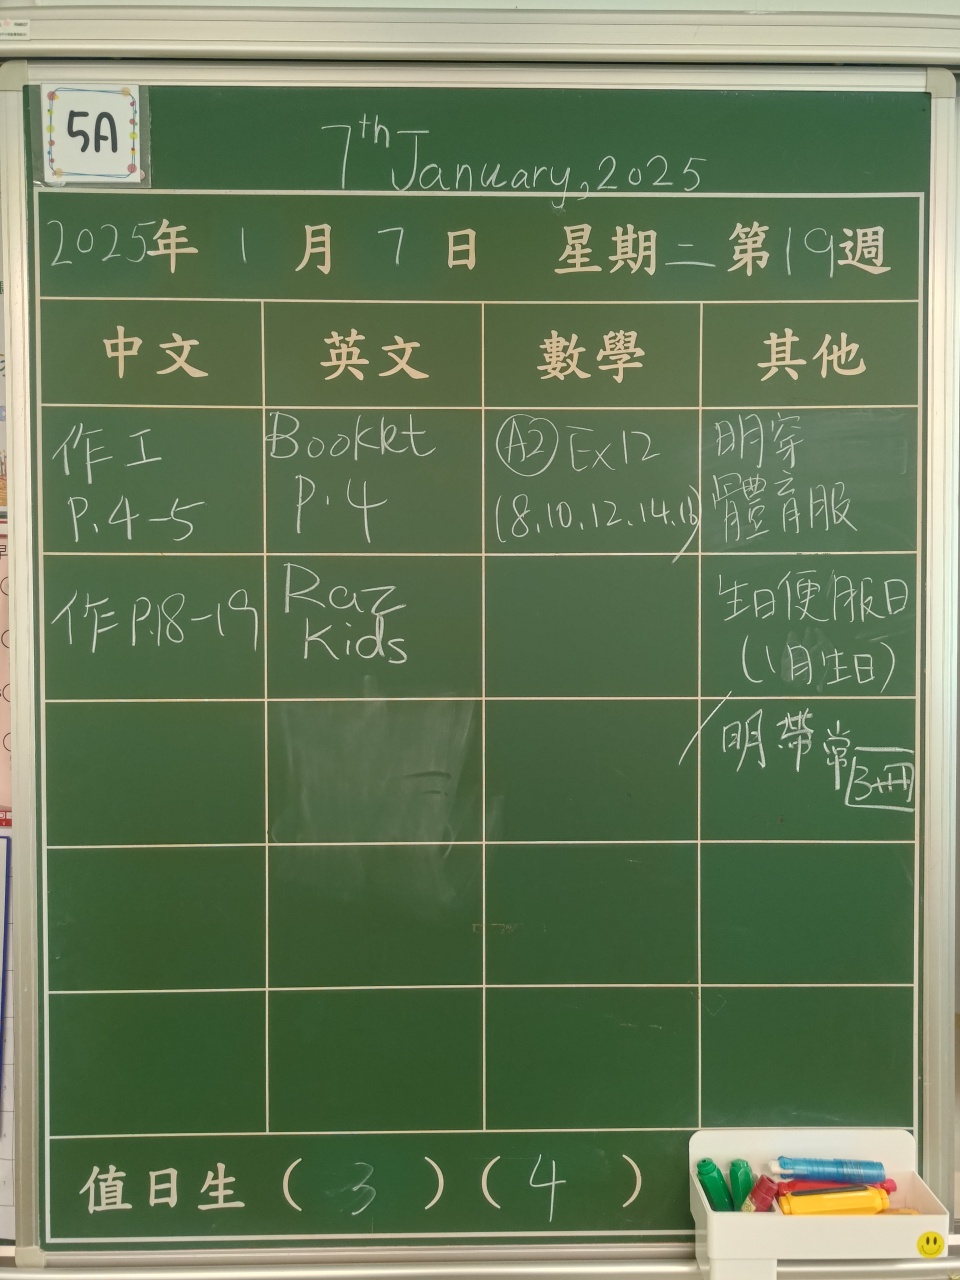 5A
7th January, 2025
2025年 1 月 7 日 星期二 第19週
中文 英文 數學 其他
作工
P.4-5
Bookket
P.4
A2 Ex12
(8.10.12.14.16)
明穿
體育服
作P.18-19
Raz
Kids
生日便服日
(1月生日)
明帶常
3冊
值日生 ( 3 ) ( 4 )